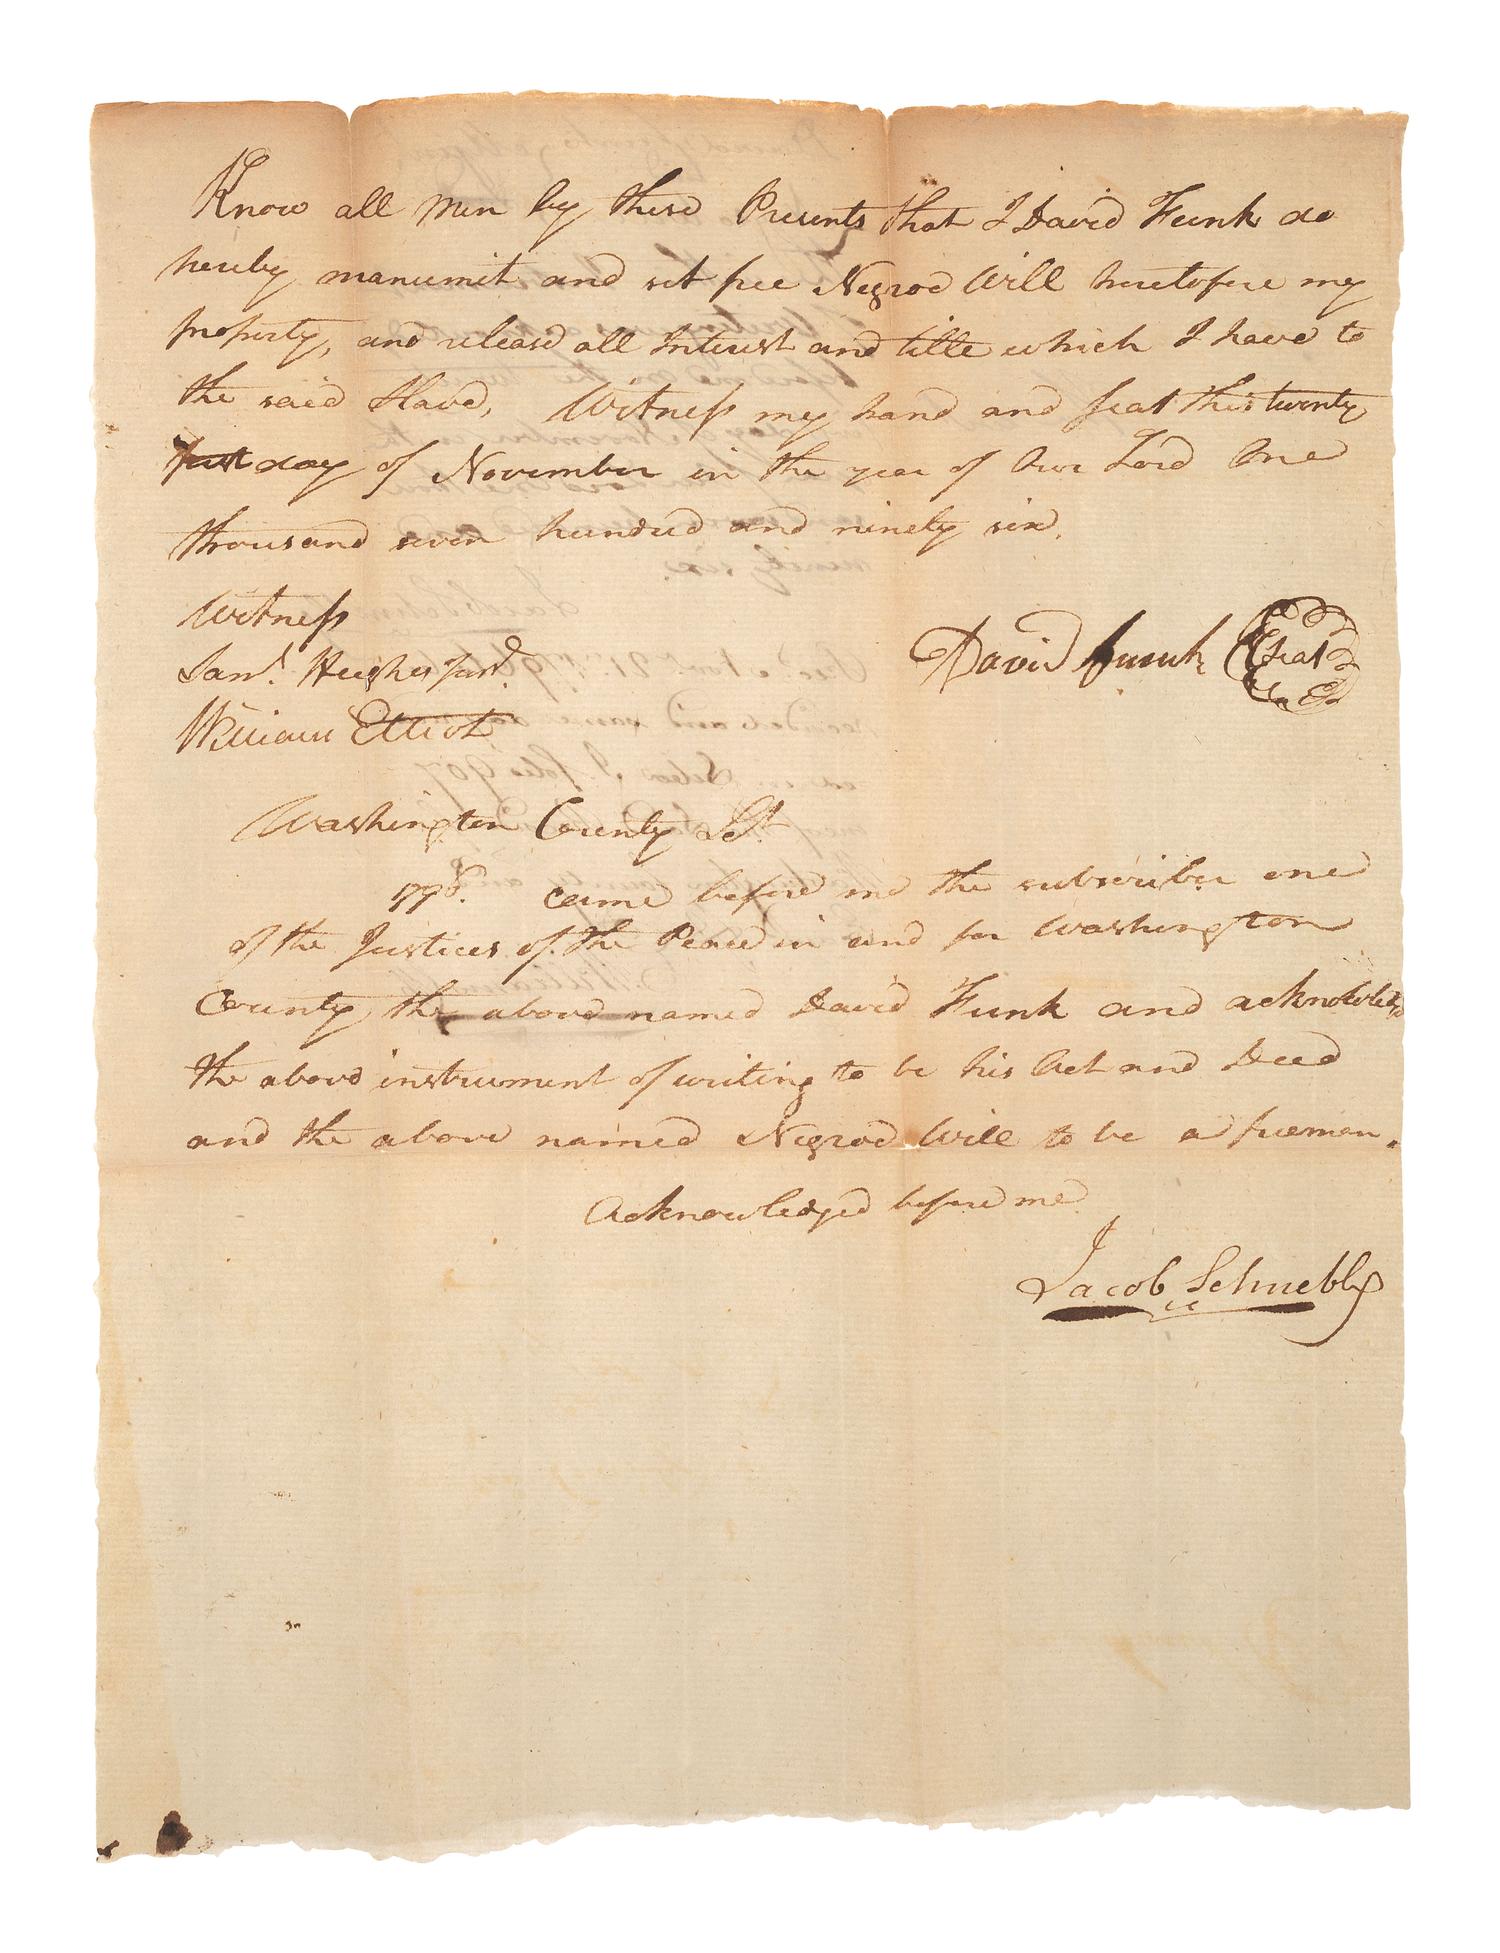 Know all men by these Presents that I David Funk do
hereby manumit and set free Negroe Will heretofore my
property, and release all Interest and title which I have to
the said Slave, Witness my hand and seal this twenty
first day of November in the year of Our Lord One
thousand seven hundred and ninety six.
Witness
Saml. Hughes Junr.
William Elliot
David Funk Seal
Washington County Sct.
1796. came before me the subscriber one
of the Justices of the Peace in and for Washington
County the above named David Funk and acknowledged
the above instrument of writing to be his Act and Deed
and the above named Negroe Will to be a freeman.
Acknowledged before me
Jacob Schnebly